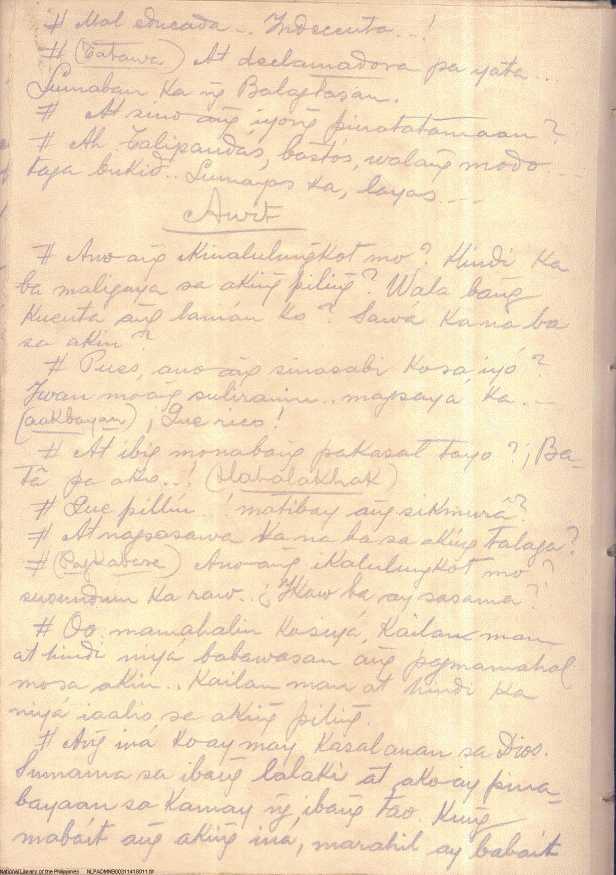 # Mal educada... Indecenta...!
# (Tatawa) At declamadora pa yata...
Lumaban ka ng Balagtasan.
# At sino ang iyong pinatatamaan?
# Ah, talipandas, bastos, walang modo...
taga bukid.. Lumayas ka, layas...
Awit
# Ano ang ikinalulungkot mo? Hindi ka
ba maligaya sa aking piling? Wala bang
kuenta ang laman ko? Sawa ka na ba
sa akin?
# Pues, ano ang sinasabi ko sa iyo?
Iwan mo ang suliranin.. magsaya ka...
(aakbayan) ¡Que rico!
# At ibig mo nabang pakasal tayo? ¡Ba-
tâ pa ako..! (Hahalakhak)
# Que pillin..! matibay ang sikmurâ?
# At nagsasawa ka na ba sa aking talaga?
# (Pagkabasa) Ano ang ikalulungkot mo?
susunduin ka raw.. ¿Ikaw ba ay sasama?
# Oo. mamahalin ko siyá, kailan man
at hindi niyá babawasan ang pagmamahal
mo sa akin.. kailan man at hindi ka
niyá iaalis sa aking piling.
# Ang iná ko ay may kasalanan sa Dios.
Sumama sa ibang lalaki at ako ay pina-
bayaan sa kamay ng ibang tao. Kung
mabait ang aking iná, marahil ay babait
National Library of the Philippines NLPADMNB00311418011.tif